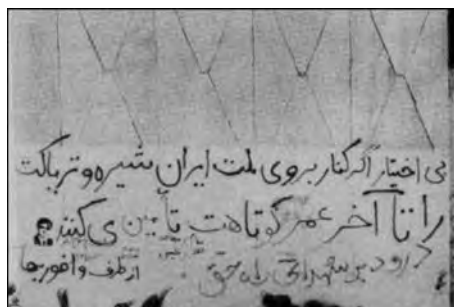 بی اختیار اگر کنار بروی ملت ایران شیره و تریاکت
را تا آخر عمر کوتاهت تأمین می کنند
درود بر شهدای راه حق
از طرف وافوریها